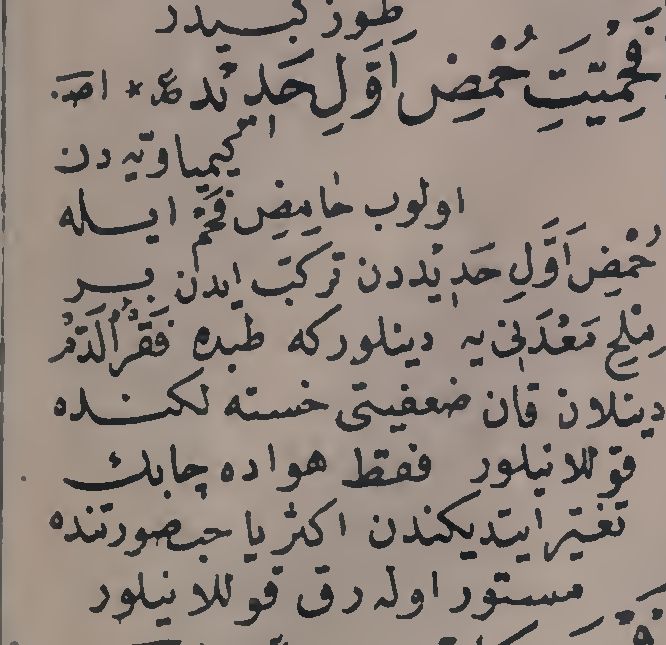 طوز كبیدر
فَحْمِيَّتِ حُمْضِ اَوَّلِ حَدِيْد ع * اص
كیمیاویه دن
اولوب حَامِضِ فَحْم ایله
حُمْضِ اَوَّلِ حَدِيْددن تركب ایدن بر
مِلْحِ مَعْدَنِی یه دینلوركه طبده فَقْرُ الَدَّمْ
دینلان قان ضعفیتی خسته لكنده
قوللانیلور فقط هواده چابك
تغیّر ایتدیكندن اكثریا حب صورتنده
مستور اوله رق قوللانیلور